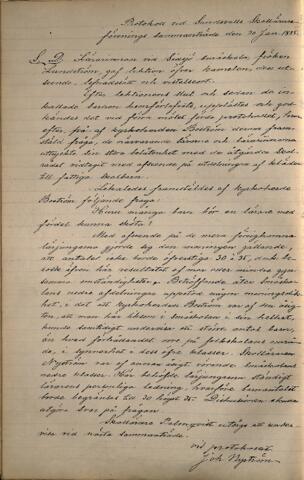 Protokoll vid Sundsvalls Skollärare-
förenings sammanträde den 20 Jan. 1885.
S. D. Lärarinnan vid Sidsjö småskola, fröken
Lundström, gaf lektion öfver kamelen, dess ut-
seende, lefnadssätt och vistelseort.
Efter lektionens slut och sedan de in-
kallade barnen hemförlofvats, upplästes och god-
kändes det vid förra mötet förda protokollet, hvar-
efter, på af kyrkoherden Boström derom fram-
stäld fråga, de närvarande lärarne och lärarinnorna
uttryckte sin stora belåtenhet med de åtgärder Skol-
rådet vidtagit med afseende på utdelningen af kläder
till fattiga skolbarn.
Likaledes framstäldes af kyrkoherde
Boström följande fråga:
Huru många barn bör en lärare med
fördel kunna sköta?
Med afseende på de mera försigkomna
lärjungarne gjorde sig den meningen gällande,
att antalet icke borde öfverstiga 30 à 35, dock be-
rodde äfven här resultatet af mer eller mindre gyn-
samma omständigheter. Beträffande åter småsko-
lans nedre afdelningar uppstod någon meningsskilj-
aktighet, i det att kyrkoherden Boström var af den åsig-
ten, att man här liksom i småskolan i sin helhet,
kunde samtidigt undervisa ett större antal barn,
än hvad förhållandet vore på folkskolans områ-
de, i synnerhet i dess öfre klasser. Skolläraren
Nyström var af annan åsigt rörande småskolans
nedre klasser. Här behöfde lärjungarne ständigt
lärarens personliga ledning, hvarför barnantalet
borde begränsas till 30 högst 35. Diskussionen skulle
utgöra svar på frågan.
Skollärare Palmqvist utsågs att under-
visa vid nästa sammanträde.
Vid protokollet
Joh. Nyström